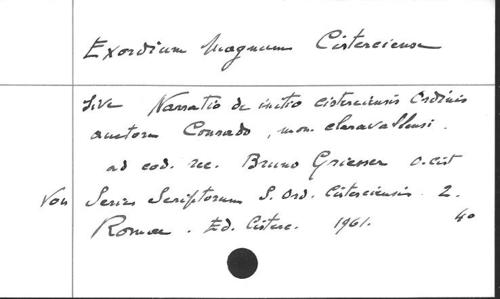 Exordium Magnum Cisterciense
sive Narratio de initio cisterciensis Ordinis
auctore Conrado, mon. claravallensi.
ad cod. rec. Bruno Griesser O. Cist
Von Series Scriptorum S. Ord. Cisterciensis. 2.
Romae. Ed. Cisterc. 1961. 40